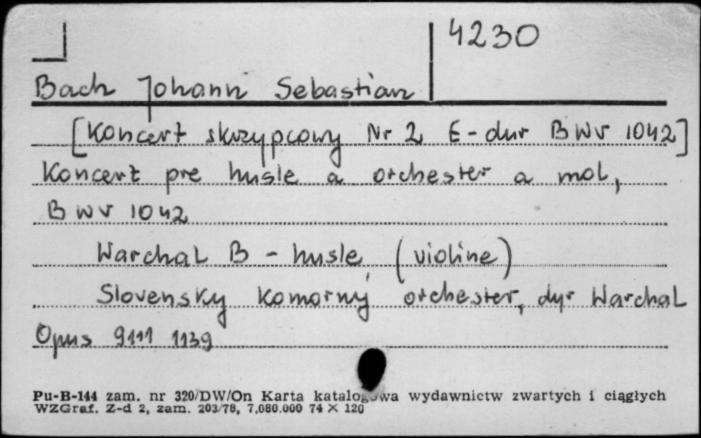 4230
Bach Johann Sebastian
[Koncert skrzypcowy Nr 2 E-dur BWV 1042]
Koncert pre husle a orchester a mol,
BWV 1042
Warchal B - husle, (violine)
Slovensky Komorný orchester, dyr Warchal
Opus 9111 1139
Pu-B-144 zam. nr 320/DW/On Karta katalogowa wydawnictw zwartych i ciągłych
WZGraf. Z-d 2, zam. 203/78, 7,080.000 74 × 120